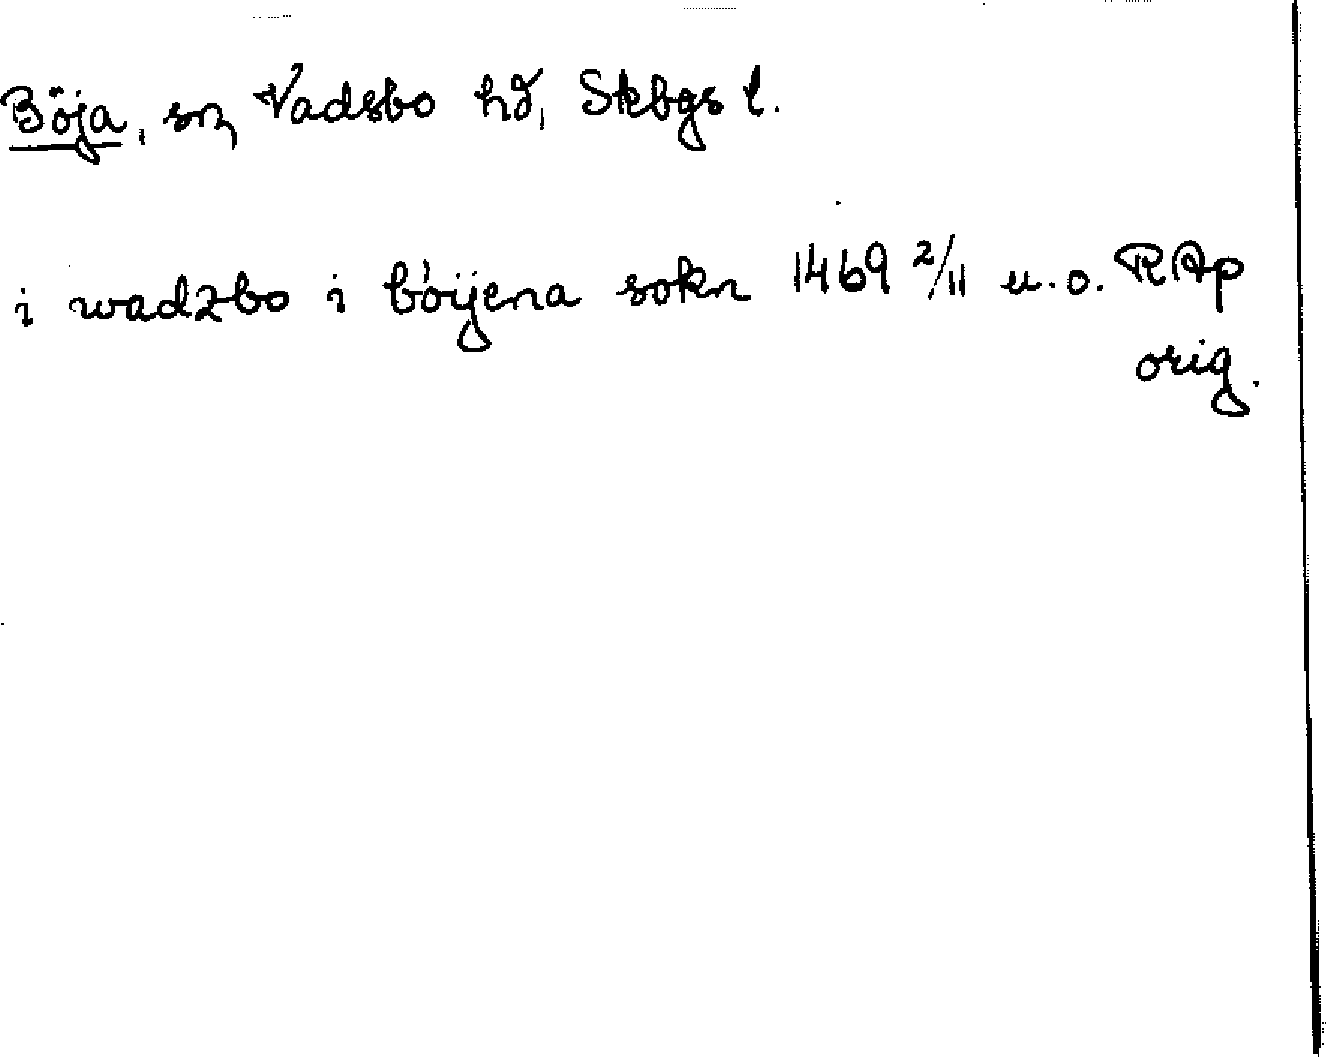 Böja, sn, Vadsbo hd, Skbgs l.
i wadzbo i bóijena sokn 1469 2/11 u.o. RAp
orig.